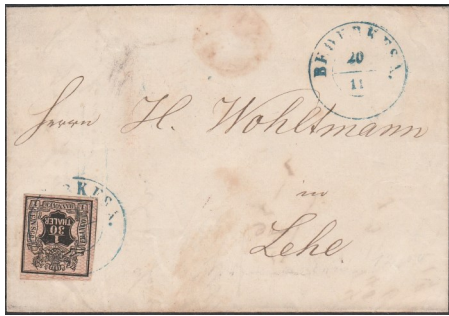 BEDERKESA.
20
11
Herrn H. Wohltmann
in
Lehe.
RKESA.
HANNOVER
1
30
THALER